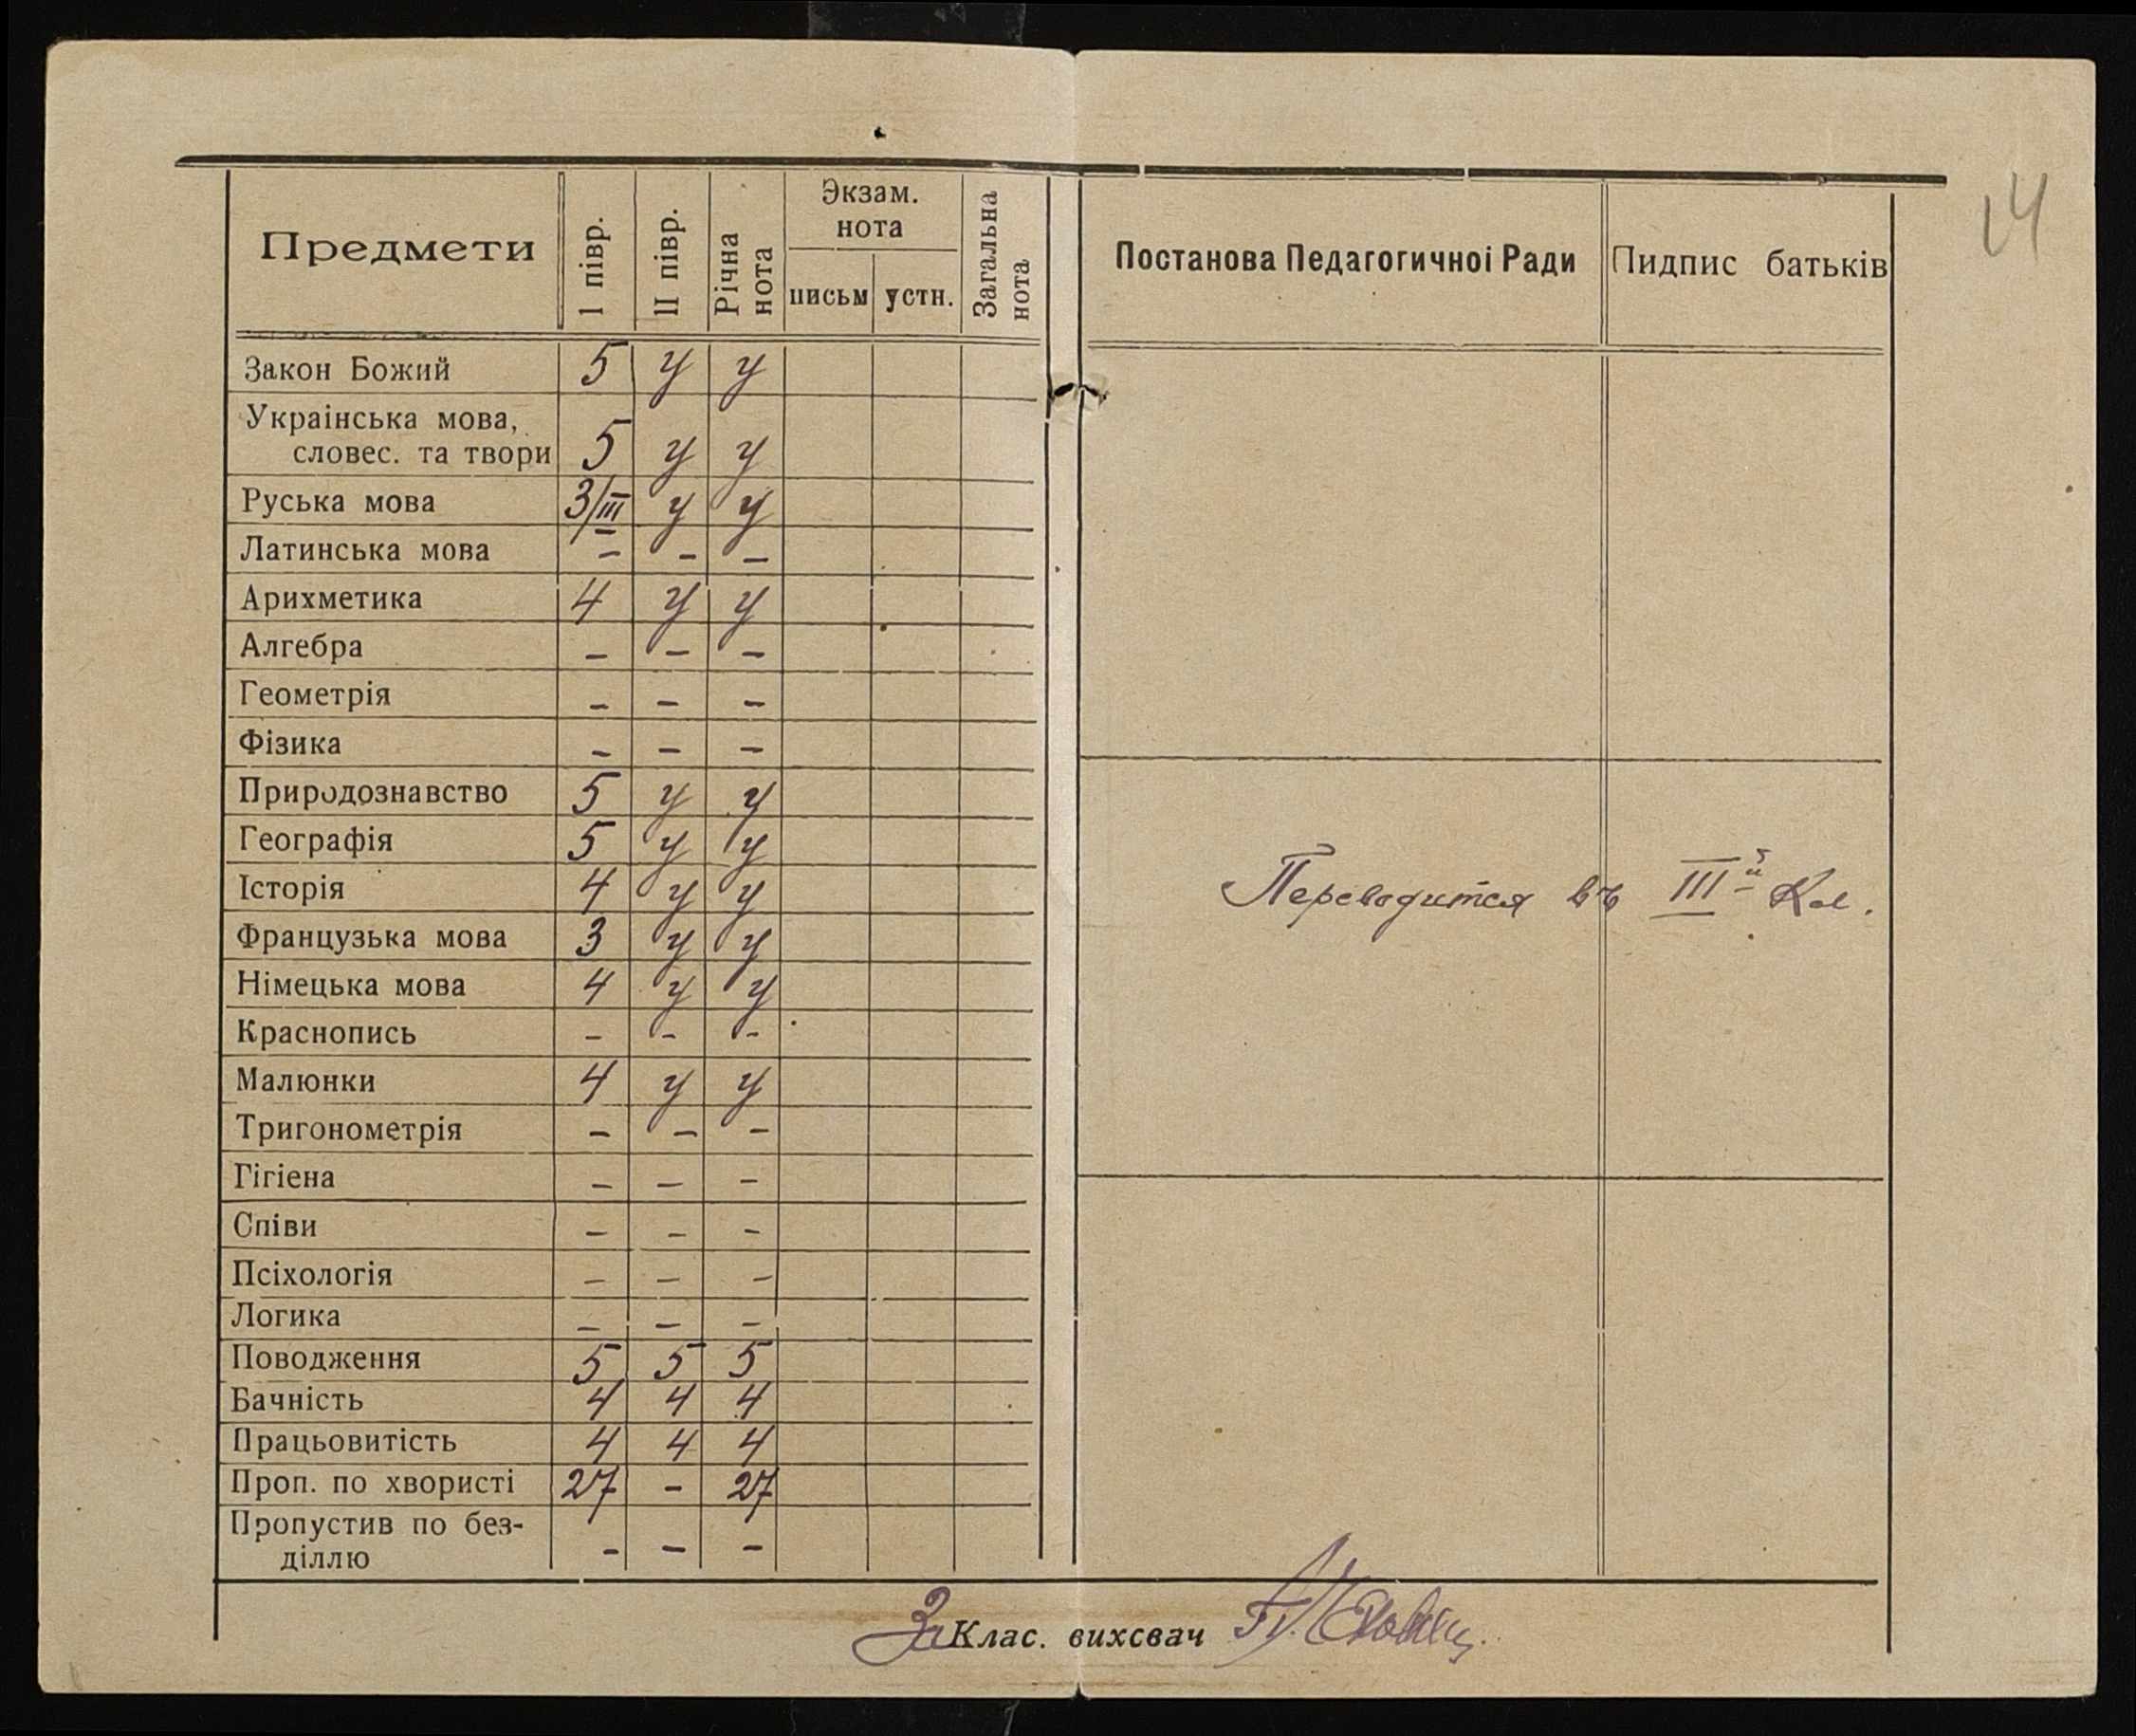 14
Предмети | I півр. | II півр. | Річна нота | Экзам. нота | письм | устн. | Загальна нота | Постанова Педагогичноі Ради | Пидпис батьків
Закон Божий 5 у у
Украінська мова,
словес. та твори 5 у у
Руська мова 3/III у у
Латинська мова – – –
Арихметика 4 у у
Алгебра – – –
Геометрія – – –
Фізика – – –
Природознавство 5 у у
Географія 5 у у
Історія 4 у у
Французька мова 3 у у
Німецька мова 4 у у
Краснопись – – –
Малюнки 4 у у
Тригонометрія – – –
Гігіена – – –
Співи – – –
Псіхологія – – –
Логика – – –
Поводження 5 5 5
Бачність 4 4 4
Працьовитість 4 4 4
Проп. по хвористі 27 – 27
Пропустив по без-
діллю – – –
Переводится въ IIIй Кл.
За Клас. вихсвач